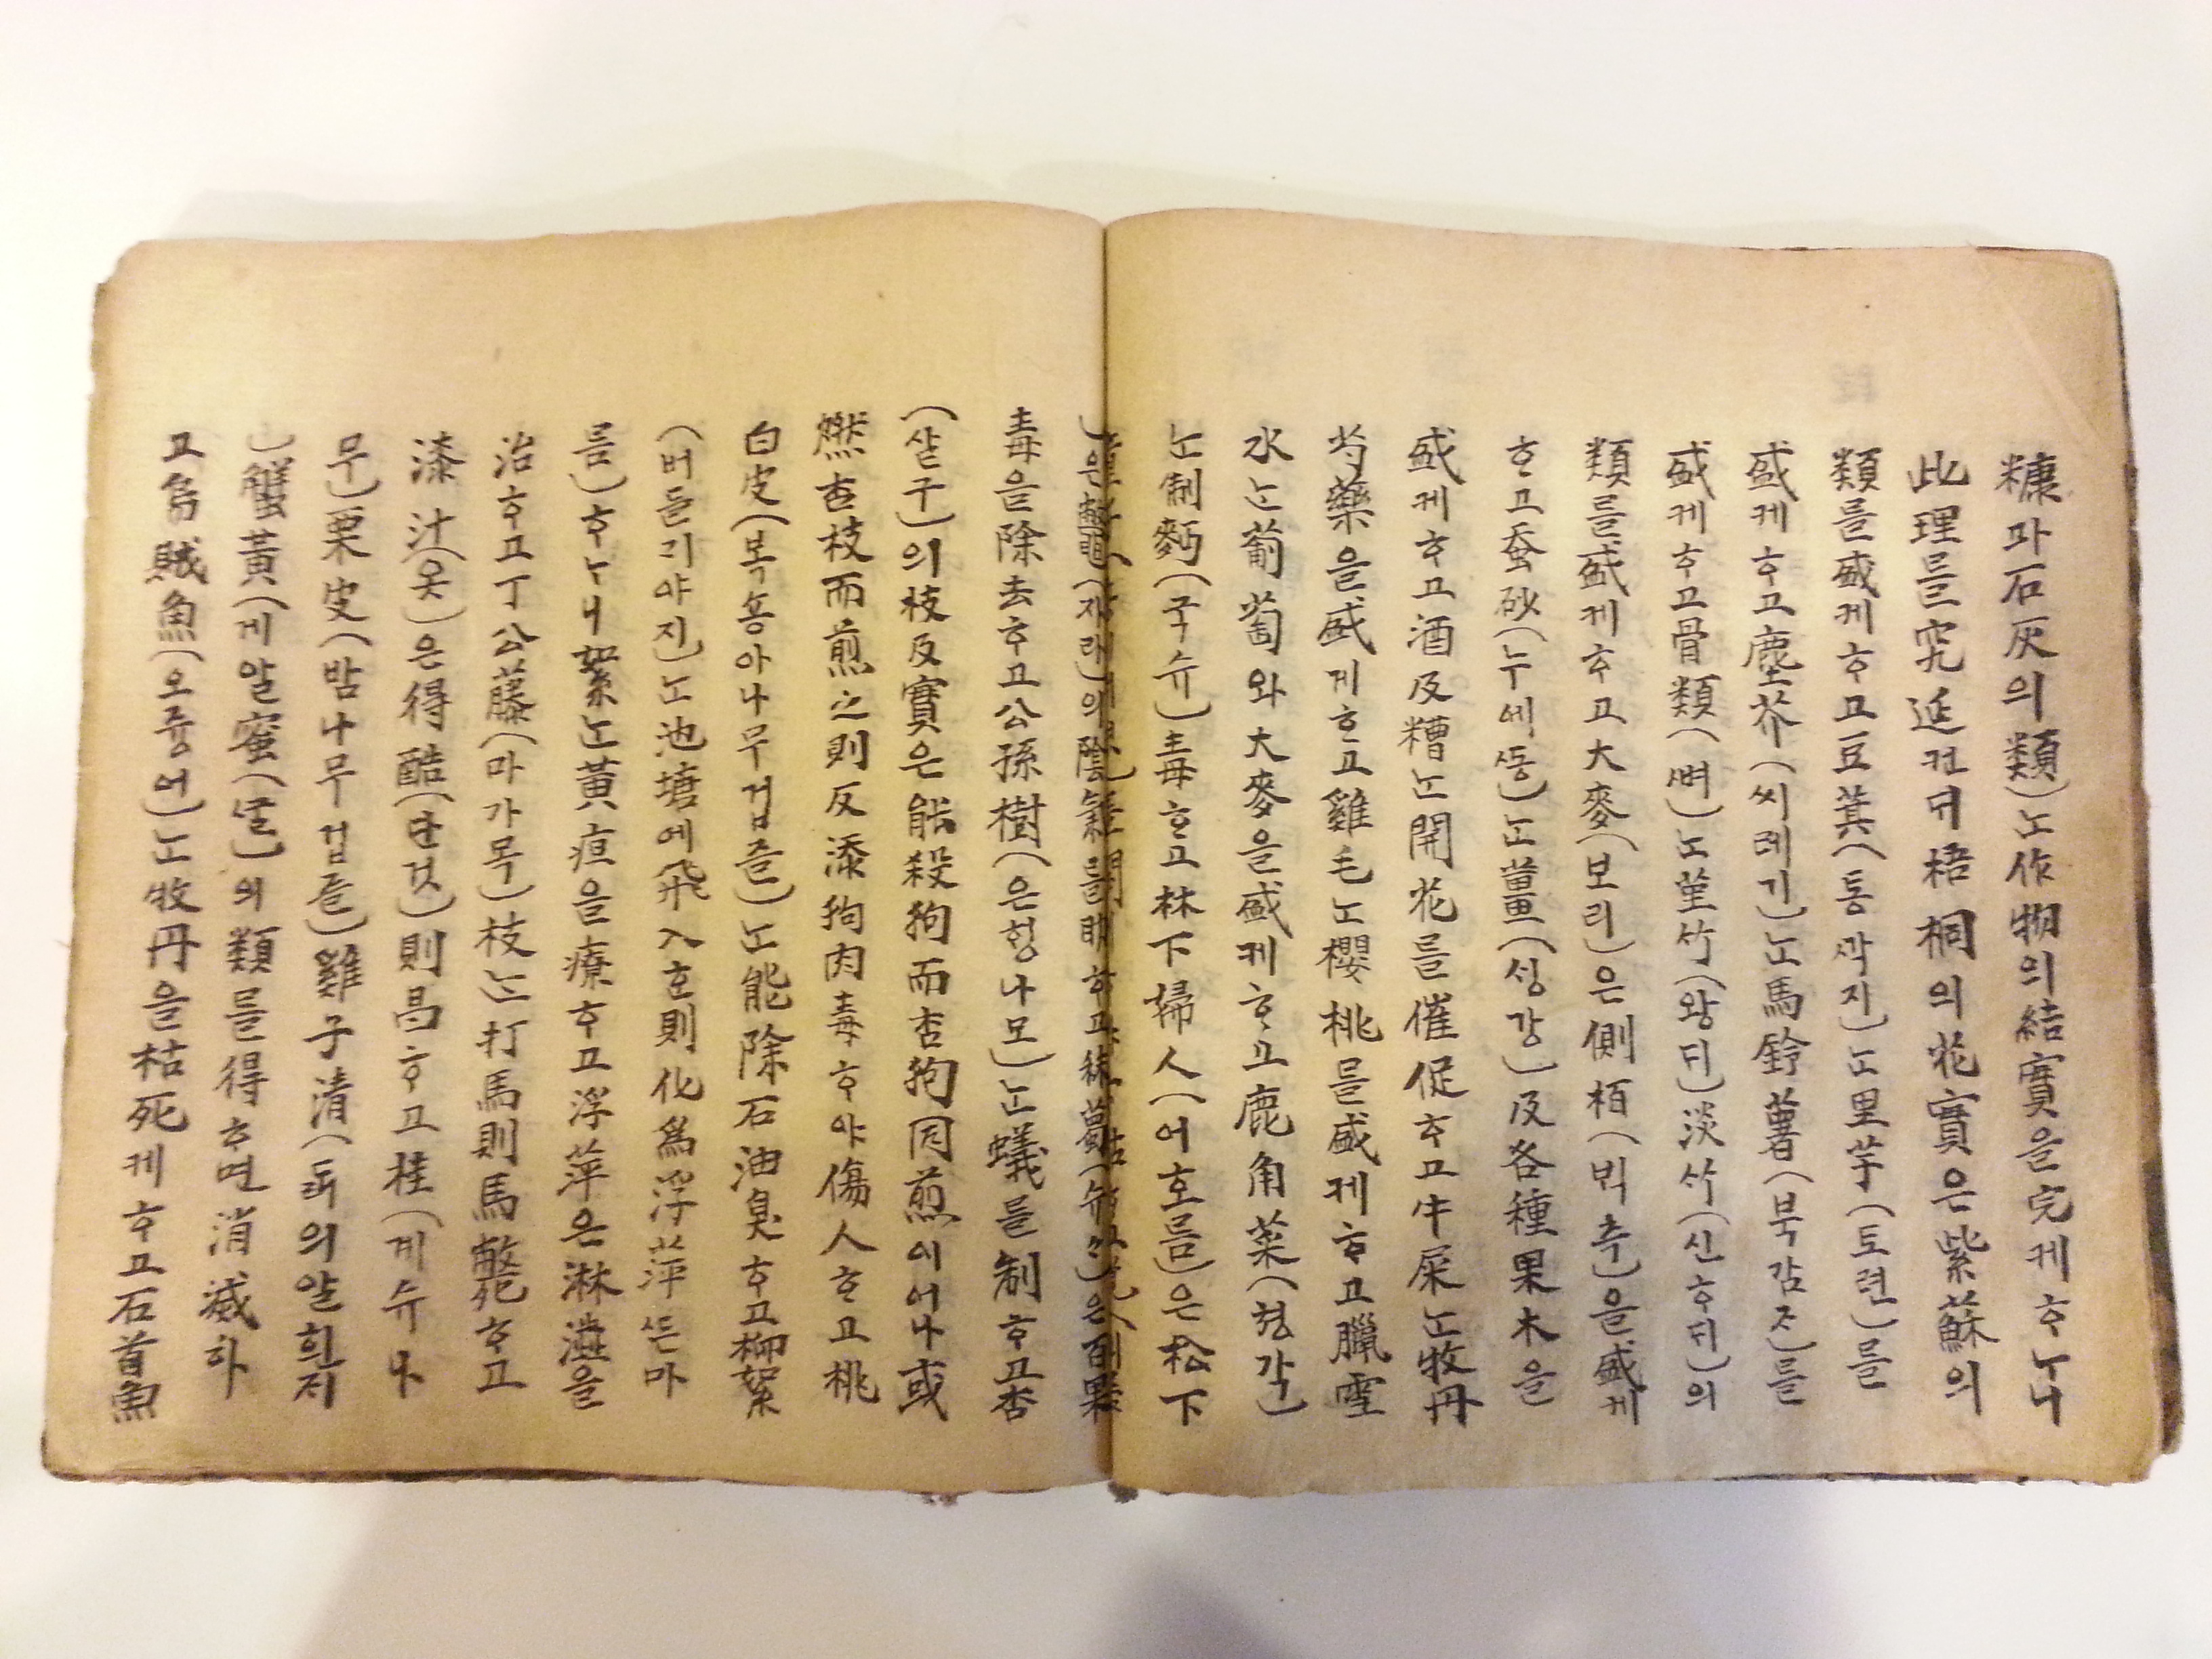 糠과石灰의類)ᄂᆞᆫ作物의結實을完케ᄒᆞᄂᆞ니
此理를究컨ᄃᆡ梧桐의花實은紫蘇의
類를盛케ᄒᆞ고豆萁(통ᄭᅡᆨ지)ᄂᆞᆫ里芋(토련)를
盛케ᄒᆞ고塵芥(씨레기)ᄂᆞᆫ馬鈴薯(북감ᄌᆞ)를
盛케ᄒᆞ고骨類(ᄲᅧ)ᄂᆞᆫ菫竹(왕ᄃᆡ)淡竹(신ᄒᆞᄃᆡ)의
類를盛케ᄒᆞ고大麥(보리)은側栢(ᄇᆡᆨ측)을盛케
ᄒᆞ고蚕砂(누에ᄯᅩᆼ)ᄂᆞᆫ薑(ᄉᆡᆼ강)及各種果木을
盛케ᄒᆞ고酒及糟ᄂᆞᆫ開花를催促ᄒᆞ고牛屎ᄂᆞᆫ牧丹
芍藥을盛케ᄒᆞ고雞毛ᄂᆞᆫ櫻桃를盛케ᄒᆞ고臘雪
水ᄂᆞᆫ葡萄와大麥을盛케ᄒᆞ고鹿角菜(청각)
ᄂᆞᆫ制麪(국슈)毒ᄒᆞ고林下婦人(어흐름)은松下
)은鼈(자라)의陰을ᄒᆞ고은百果
毒을除去ᄒᆞ고公孫樹(은ᄒᆡᆼ나모)ᄂᆞᆫ蟻를制ᄒᆞ고杏
(살구)의枝及實은能殺狗而杏狗肉煎이어나或
燃杏枝而煎之則反添狗肉毒ᄒᆞ야傷人ᄒᆞ고桃
白皮(복송아나무겁즐)ᄂᆞᆫ能除石油臭ᄒᆞ고柳絮
(버들기야지)ᄂᆞᆫ池塘에飛入ᄒᆞ則化爲浮萍ᄯᅳᆫ마
름)ᄒᆞᄂᆞ니絮ᄂᆞᆫ黃疸을療ᄒᆞ고浮萍은淋澁을
治ᄒᆞ고丁公藤(마가목)枝ᄂᆞᆫ打馬則馬斃ᄒᆞ고
漆汁(옷)은得醋(단것)則昌ᄒᆞ고桂(계슈나
무)栗皮(밤나무겁즐)雞子清(ᄃᆞᆰ의알흰ᄌᆡ
)蟹黃(게알蜜(ᄭᅮᆯ)의類를得ᄒᆞ면消滅하
고烏賊魚(오증어)ᄂᆞᆫ牧丹을枯死케ᄒᆞ고石首魚